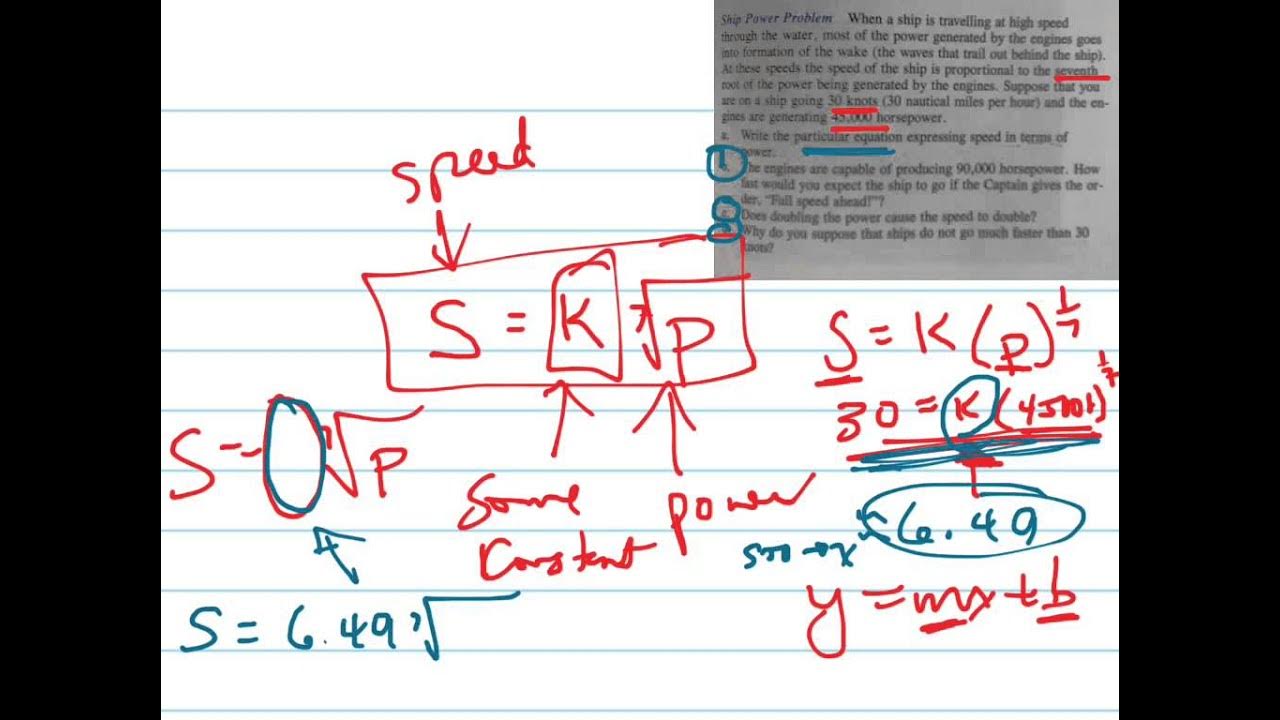 Ship Power Problem When a ship is travelling at high speed
through the water, most of the power generated by the engines goes
into formation of the wake (the waves that trail out behind the ship).
At these speeds the speed of the ship is proportional to the seventh
root of the power being generated by the engines. Suppose that you
are on a ship going 30 knots (30 nautical miles per hour) and the en-
gines are generating 45,000 horsepower.
a. Write the particular equation expressing speed in terms of
power.
The engines are capable of producing 90,000 horsepower. How
fast would you expect the ship to go if the Captain gives the or-
der, "Full speed ahead!"?
Does doubling the power cause the speed to double?
Why do you suppose that ships do not go much faster than 30
knots?
speed
S = K ⁷√P
some constant
power
S = ⁷√P
S = 6.49 ⁷√
S = K (P)^1/7
30 = K (45000)^1/7
6.49
y = mx + b